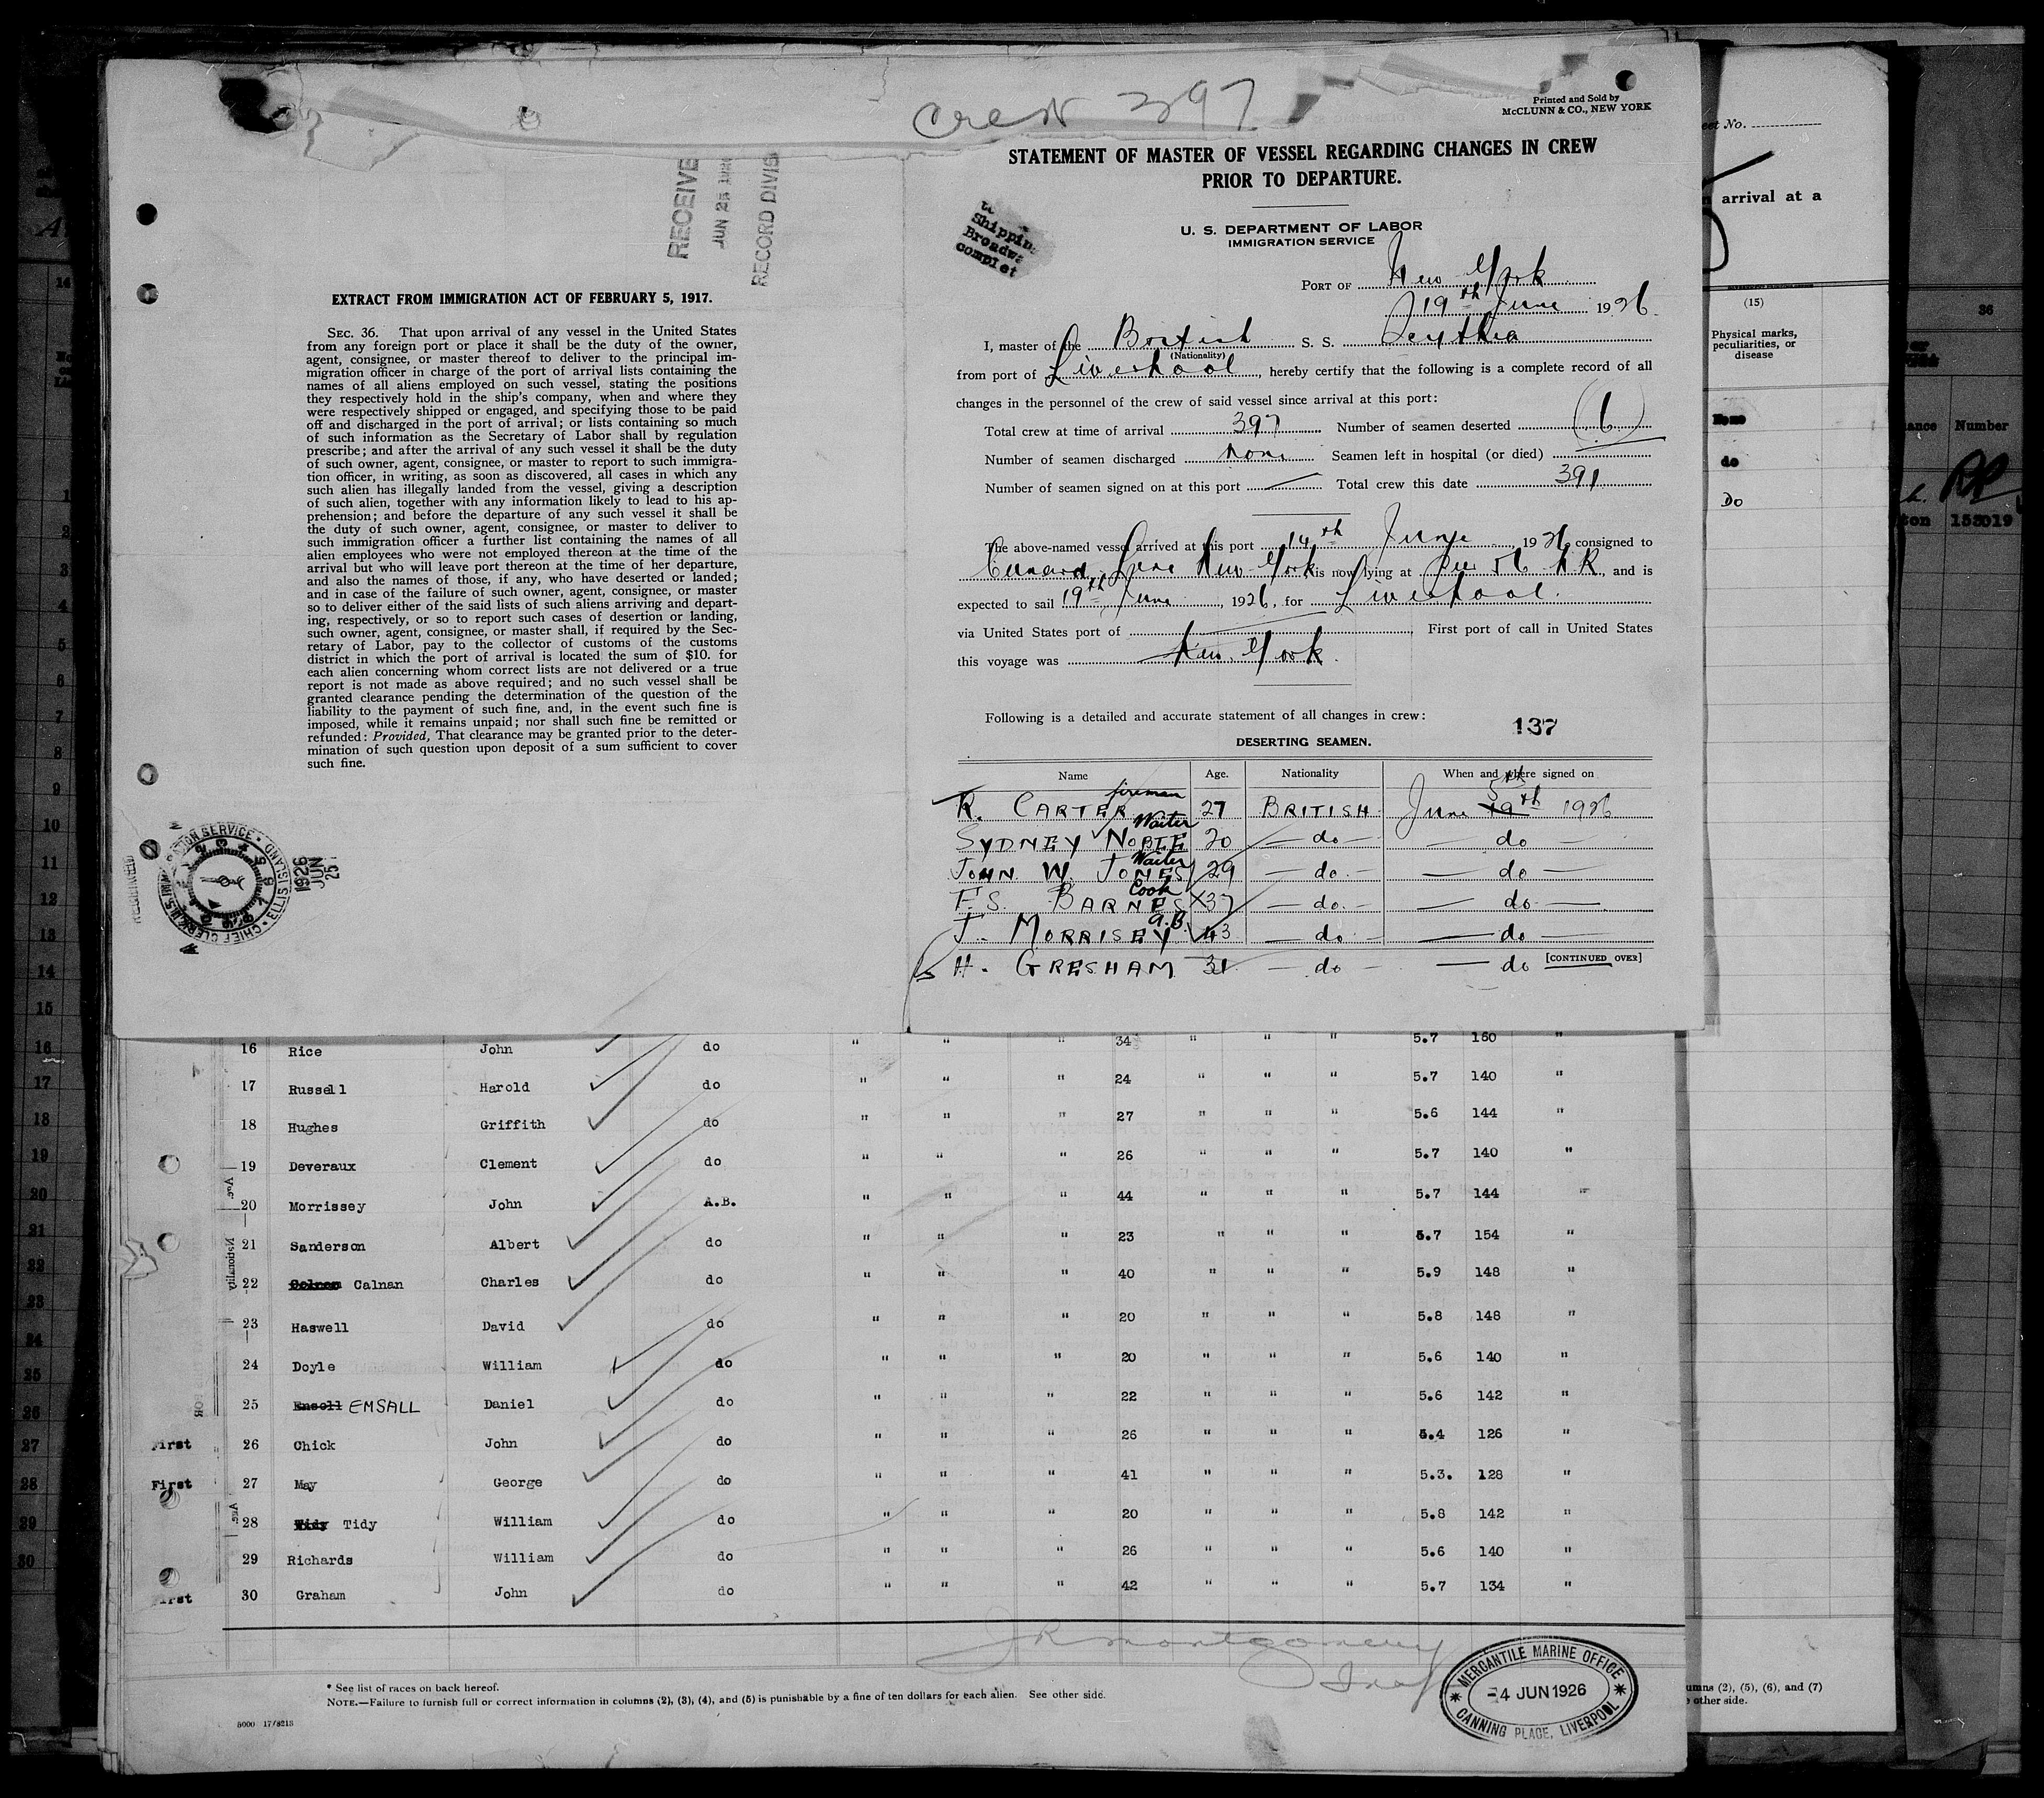 Crew 397
Printed and Sold by
McCLUNN & CO., NEW YORK
RECEIVE
JUN 25
RECORD DIVIS
EXTRACT FROM IMMIGRATION ACT OF FEBRUARY 5, 1917.
SEC. 36. That upon arrival of any vessel in the United States
from any foreign port or place it shall be the duty of the owner,
agent, consignee, or master thereof to deliver to the principal im-
migration officer in charge of the port of arrival lists containing the
names of all aliens employed on such vessel, stating the positions
they respectively hold in the ship's company, when and where they
were respectively shipped or engaged, and specifying those to be paid
off and discharged in the port of arrival; or lists containing so much
of such information as the Secretary of Labor shall by regulation
prescribe; and after the arrival of any such vessel it shall be the duty
of such owner, agent, consignee, or master to report to such immigra-
tion officer, in writing, as soon as discovered, all cases in which any
such alien has illegally landed from the vessel, giving a description
of such alien, together with any information likely to lead to his ap-
prehension; and before the departure of any such vessel it shall be
the duty of such owner, agent, consignee, or master to deliver to
such immigration officer a further list containing the names of all
alien employees who were not employed thereon at the time of the
arrival but who will leave port thereon at the time of her departure,
and also the names of those, if any, who have deserted or landed;
and in case of the failure of such owner, agent, consignee, or master
so to deliver either of the said lists of such aliens arriving and depart-
ing, respectively, or so to report such cases of desertion or landing,
such owner, agent, consignee, or master shall, if required by the Sec-
retary of Labor, pay to the collector of customs of the customs
district in which the port of arrival is located the sum of $10. for
each alien concerning whom correct lists are not delivered or a true
report is not made as above required; and no such vessel shall be
granted clearance pending the determination of the question of the
liability to the payment of such fine, and, in the event such fine is
imposed, while it remains unpaid; nor shall such fine be remitted or
refunded: Provided, That clearance may be granted prior to the deter-
mination of such question upon deposit of a sum sufficient to cover
such fine.
1926 JUN 25
CHIEF CLERK U.S. IMMIGRATION SERVICE ELLIS ISLAND
STATEMENT OF MASTER OF VESSEL REGARDING CHANGES IN CREW
PRIOR TO DEPARTURE.
Shippin
Broadwa
complet
U. S. DEPARTMENT OF LABOR
IMMIGRATION SERVICE
PORT OF New York
19th June 1926.
I, master of the British S. S. Scythia
(Nationality)
from port of Liverpool, hereby certify that the following is a complete record of all
changes in the personnel of the crew of said vessel since arrival at this port:
Total crew at time of arrival 397 Number of seamen deserted (6)
Number of seamen discharged None Seamen left in hospital (or died)
Number of seamen signed on at this port — Total crew this date 391
The above-named vessel arrived at this port 14th June, 1926, consigned to
Cunard Line New York is now lying at Pier 56 N.R., and is
expected to sail 19th June, 1926, for Liverpool.
via United States port of — First port of call in United States
this voyage was New York.
Following is a detailed and accurate statement of all changes in crew:
137
DESERTING SEAMEN.
Name Age. Nationality When and where signed on
R. CARTER fireman 27 BRITISH June 19th 5th 1926
SYDNEY NOBLE Waiter 20 — do — — do —
JOHN W. JONES Waiter 29 — do. — — do —
F.S. BARNES Cook 37 — do. — — do. —
J. MORRISEY A.B. 43 — do — — do —
6 H. GRESHAM 31 — do — — do [CONTINUED OVER]
16 Rice John do " " " 34 " " " 5.7 160 "
17 Russell Harold do " " " 24 " " " 5.7 140 "
18 Hughes Griffith do " " " 27 " " " 5.6 144 "
19 Deveraux Clement do " " " 26 " " " 5.7 140 "
20 Morrissey John A.B. " " " 44 " " " 5.7 144 "
21 Sanderson Albert do " " " 23 " " " 5.7 154 "
22 Calnan Charles do " " " 40 " " " 5.9 148 "
23 Haswell David do " " " 20 " " " 5.8 148 "
24 Doyle William do " " " 20 " " " 5.6 140 "
25 Ensoll EMSALL Daniel do " " " 22 " " " 5.6 142 "
26 Chick John do " " " 26 " " " 5.4 126 "
27 May George do " " " 41 " " " 5.3. 128 "
28 Tidy William do " " " 20 " " " 5.8 142 "
29 Richards William do " " " 26 " " " 5.6 140 "
30 Graham John do " " " 42 " " " 5.7 134 "
First
First
JR Montgomery
MERCANTILE MARINE OFFICE
-4 JUN 1926
CANNING PLACE, LIVERPOOL
* See list of races on back hereof.
NOTE.—Failure to furnish full or correct information in columns (2), (3), (4), and (5) is punishable by a fine of ten dollars for each alien. See other side.
5000 17/8213
No.
arrival at a
(15)
Physical marks,
peculiarities, or
disease
None
do
Do
(2), (5), (6), and (7)
other side.
36
Number
153019